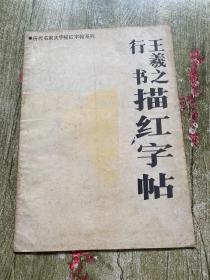 ●历代名家大字描红字帖系列
王羲之
行书
描红字帖